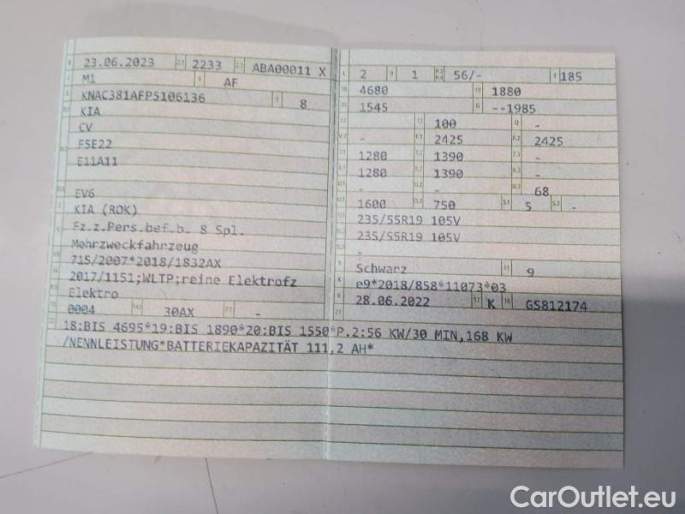 23.06.2023 2233 ABA00011 X
M1 AF
KNAC381AFP5106136 8
KIA
CV
F5E22
E11A11
EV6
KIA (ROK)
Fz.z.Pers.bef.b. 8 Spl.
Mehrzweckfahrzeug
715/2007*2018/1832AX
2017/1151;WLTP;reine Elektrofz
Elektro
0004 30AX -
2 1 56/- 185
4680 1880
1545 --1985
100 -
- 2425 2425
1280 1390 -
1280 1390 -
- - 68
1600 750 5 -
235/55R19 105V
235/55R19 105V
-
Schwarz 9
e9*2018/858*11073*03
28.06.2022 K GS812174
18:BIS 4695*19:BIS 1890*20:BIS 1550*P.2:56 KW/30 MIN,168 KW
/NENNLEISTUNG*BATTERIEKAPAZITÄT 111,2 AH*
CarOutlet.eu